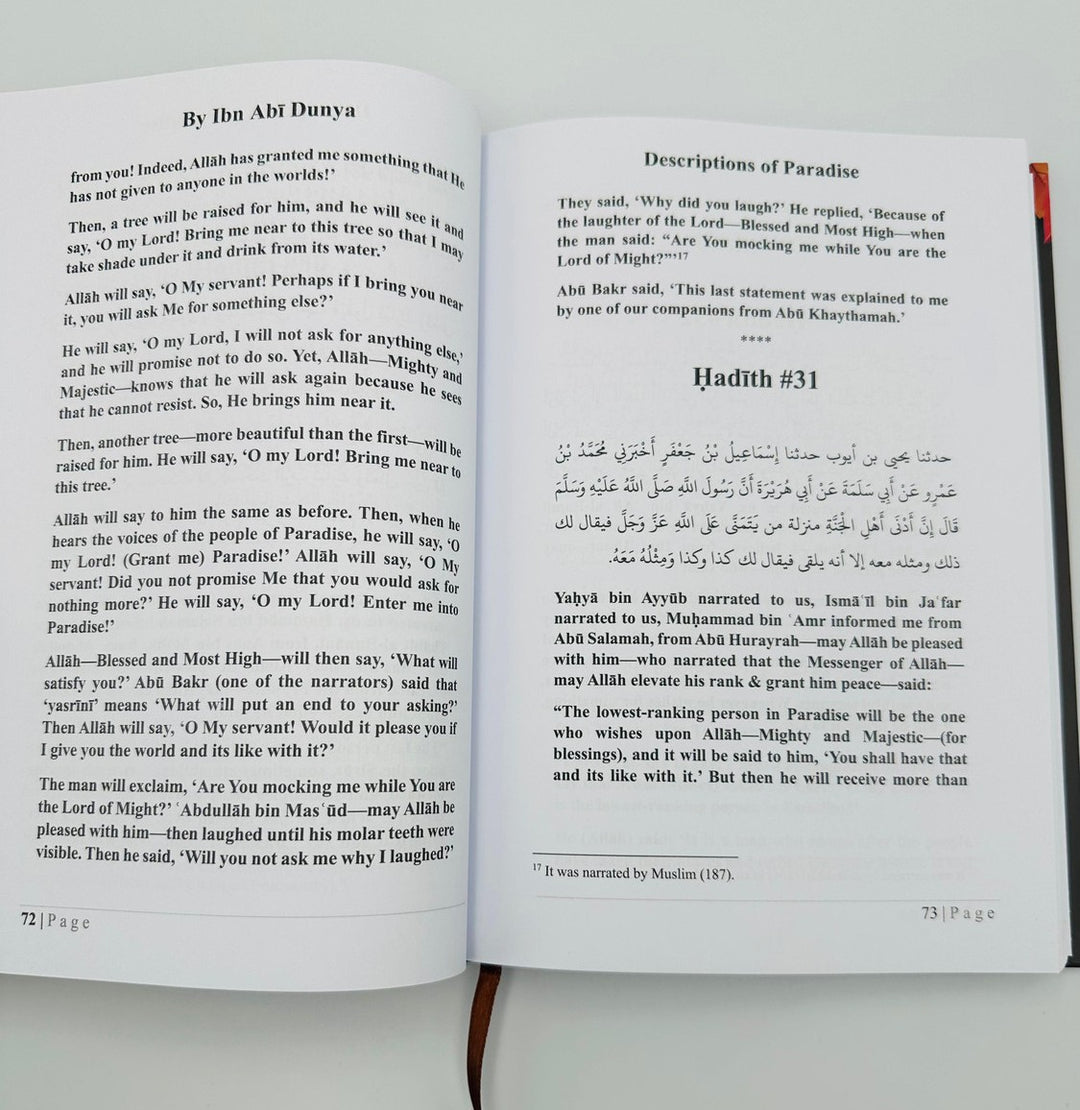 By Ibn Abī Dunya
from you! Indeed, Allāh has granted me something that He
has not given to anyone in the worlds!’
Then, a tree will be raised for him, and he will see it and
say, ‘O my Lord! Bring me near to this tree so that I may
take shade under it and drink from its water.’
Allāh will say, ‘O My servant! Perhaps if I bring you near
it, you will ask Me for something else?’
He will say, ‘O my Lord, I will not ask for anything else,’
and he will promise not to do so. Yet, Allāh—Mighty and
Majestic—knows that he will ask again because he sees
that he cannot resist. So, He brings him near it.
Then, another tree—more beautiful than the first—will be
raised for him. He will say, ‘O my Lord! Bring me near to
this tree.’
Allāh will say to him the same as before. Then, when he
hears the voices of the people of Paradise, he will say, ‘O
my Lord! (Grant me) Paradise!’ Allāh will say, ‘O My
servant! Did you not promise Me that you would ask for
nothing more?’ He will say, ‘O my Lord! Enter me into
Paradise!’
Allāh—Blessed and Most High—will then say, ‘What will
satisfy you?’ Abū Bakr (one of the narrators) said that
‘yasrīnī’ means ‘What will put an end to your asking?’
Then Allāh will say, ‘O My servant! Would it please you if
I give you the world and its like with it?’
The man will exclaim, ‘Are You mocking me while You are
the Lord of Might?’ ʿAbdullāh bin Masʿūd—may Allāh be
pleased with him—then laughed until his molar teeth were
visible. Then he said, ‘Will you not ask me why I laughed?’
72 | Page
Descriptions of Paradise
They said, ‘Why did you laugh?’ He replied, ‘Because of
the laughter of the Lord—Blessed and Most High—when
the man said: “Are You mocking me while You are the
Lord of Might?”’17
Abū Bakr said, ‘This last statement was explained to me
by one of our companions from Abū Khaythamah.’
****
Ḥadīth #31
حدثنا يحيى بن أيوب حدثنا إِسْمَاعِيلُ بْنُ جَعْفَرٍ أَخْبَرَنِي مُحَمَّدُ بْنُ
عَمْرٍو عَنْ أَبِي سَلَمَةَ عَنْ أَبِي هُرَيْرَةَ أَنَّ رَسُولَ اللَّهِ صَلَّى اللَّهُ عَلَيْهِ وَسَلَّمَ
قَالَ إِنَّ أَدْنَى أَهْلِ الْجَنَّةِ منزلة من يَتَمَنَّى عَلَى اللَّهِ عَزَّ وَجَلَّ فيقال لك
ذلك ومثله معه إلا أنه يلقى فيقال لك كذا وكذا وَمِثْلُهُ مَعَهُ.
Yaḥyā bin Ayyūb narrated to us, Ismāʿīl bin Jaʿfar
narrated to us, Muḥammad bin ʿAmr informed me from
Abū Salamah, from Abū Hurayrah—may Allāh be pleased
with him—who narrated that the Messenger of Allāh—
may Allāh elevate his rank & grant him peace—said:
“The lowest-ranking person in Paradise will be the one
who wishes upon Allāh—Mighty and Majestic—(for
blessings), and it will be said to him, ‘You shall have that
and its like with it.’ But then he will receive more than
17 It was narrated by Muslim (187).
73 | Page